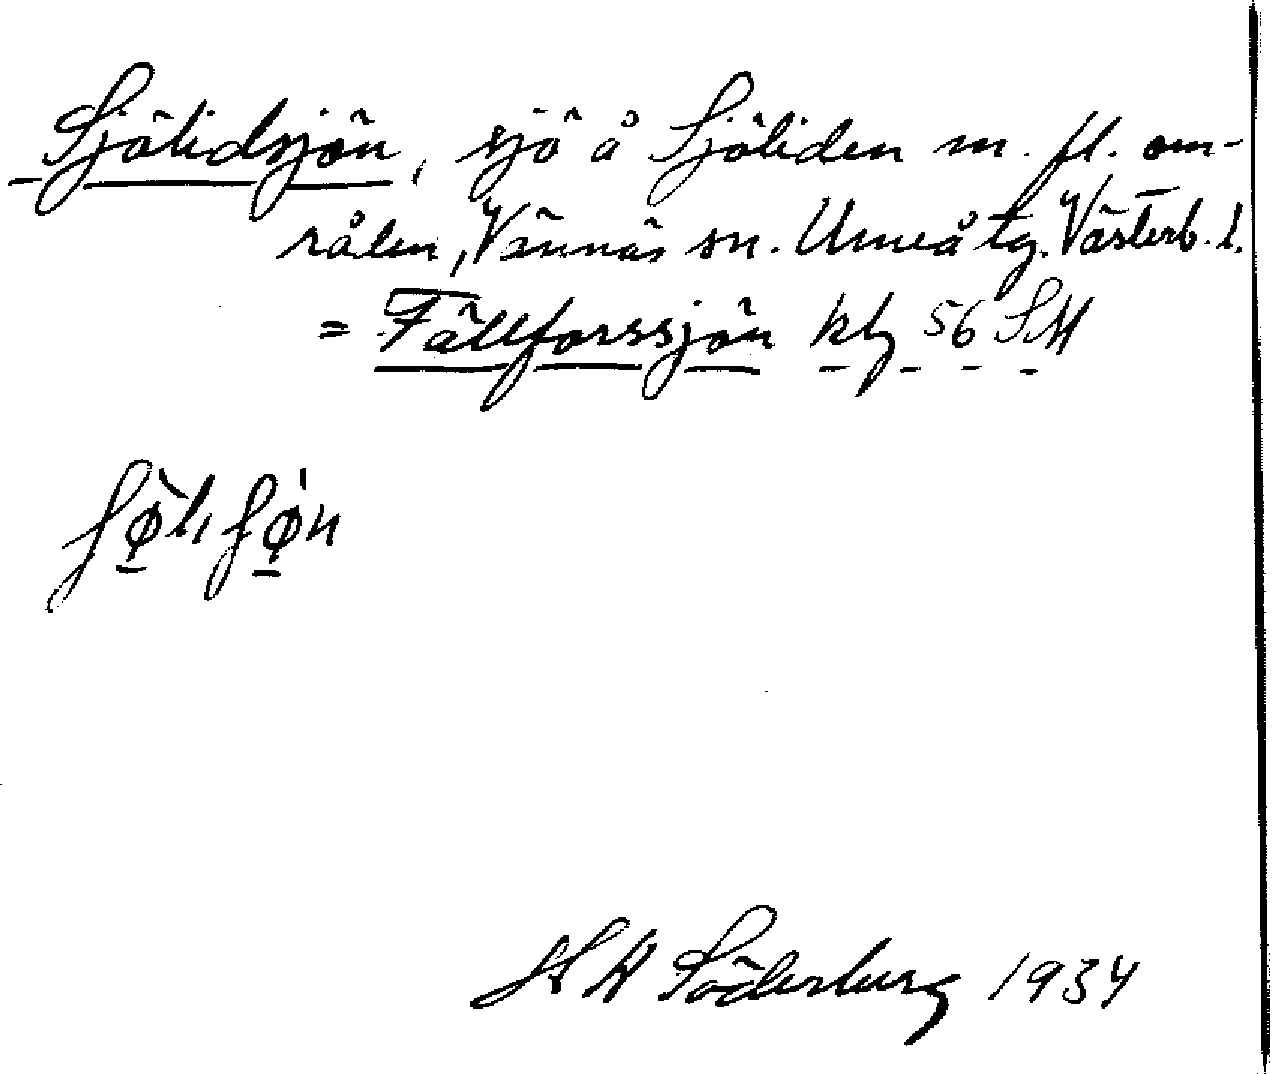 Sjölidsjön, sjö å Sjöliden m. fl. om-
råden, Vännäs sn. Umeå tg. Västerb. l.
= Fällforssjön kbl 56 SM
Söderburg 1934